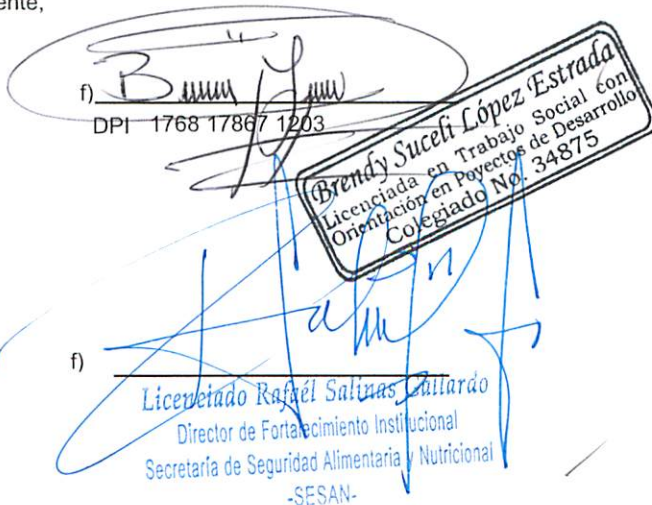 ente,
f)
DPI 1768 17867 1203
Brendy Suceli López Estrada
Licenciada en Trabajo Social con
Orientación en Poyectos de Desarrollo
Colegiado No. 34875
f)
Licenciado Rafaél Salinas Gallardo
Director de Fortalecimiento Institucional
Secretaría de Seguridad Alimentaria y Nutricional
-SESAN-